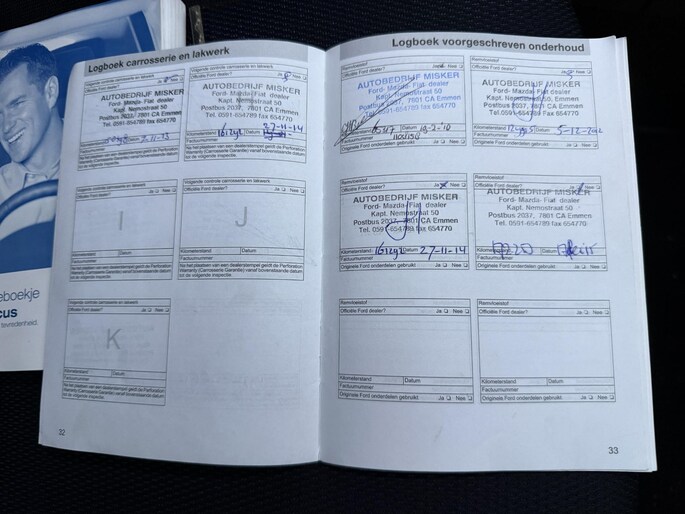 eboekje
cus
tevredenheid.
Logboek carrosserie en lakwerk
Volgende controle carrosserie en lakwerk
Officiële Ford dealer? Ja Nee
AUTOBEDRIJF MISKER
Ford- Mazda- Fiat dealer
Kapt. Nemostraat 50
Postbus 2037, 7801 CA Emmen
Tel. 0591-654789 fax 654770
Kilometerstand Datum
Factuurnummer
Na het plaatsen van een dealerstempel geldt de Perforation
Warranty (Carrosserie Garantie) vanaf bovenstaande datum
tot de volgende inspectie.
Officiële Ford dealer? Ja Nee
AUTOBEDRIJF MISKER
Ford- Mazda- Fiat dealer
Kapt. Nemostraat 50
Postbus 2037, 7801 CA Emmen
Tel. 0591-654789 fax 654770
27-11-14
Kilometerstand Datum
Factuurnummer
Na het plaatsen van een dealerstempel geldt de Perforation
Warranty (Carrosserie Garantie) vanaf bovenstaande datum
tot de volgende inspectie.
Volgende controle carrosserie en lakwerk
Officiële Ford dealer? Ja Nee
I
Kilometerstand Datum
Factuurnummer
Na het plaatsen van een dealerstempel geldt de Perforation
Warranty (Carrosserie Garantie) vanaf bovenstaande datum
tot de volgende inspectie.
Volgende controle carrosserie en lakwerk
Officiële Ford dealer? Ja Nee
J
Kilometerstand Datum
Factuurnummer
Na het plaatsen van een dealerstempel geldt de Perforation
Warranty (Carrosserie Garantie) vanaf bovenstaande datum
tot de volgende inspectie.
Volgende controle carrosserie en lakwerk
Officiële Ford dealer? Ja Nee
K
Kilometerstand Datum
Factuurnummer
Na het plaatsen van een dealerstempel geldt de Perforation
Warranty (Carrosserie Garantie) vanaf bovenstaande datum
tot de volgende inspectie.
32
Logboek voorgeschreven onderhoud
Remvloeistof
Officiële Ford dealer? Nee
AUTOBEDRIJF MISKER
Ford- Mazda- Fiat dealer
Kapt. Nemostraat 50
Postbus 2037, 7801 CA Emmen
Tel. 0591-654789 fax 654770
Datum
Factuurnummer
Originele Ford onderdelen gebruikt Ja Nee
Remvloeistof
Officiële Ford dealer? Nee
AUTOBEDRIJF MISKER
Ford- Mazda- Fiat dealer
Kapt. Nemostraat 50
Postbus 2037, 7801 CA Emmen
Tel. 0591-654789 fax 654770
Kilometerstand Datum
Factuurnummer
Originele Ford onderdelen gebruikt Ja Nee
Remvloeistof
Officiële Ford dealer? Ja Nee
AUTOBEDRIJF MISKER
Ford- Mazda- Fiat dealer
Kapt. Nemostraat 50
Postbus 2037, 7801 CA Emmen
Tel. 0591-654789 fax 654770
Kilometerstand Datum 27-11-14
Factuurnummer
Originele Ford onderdelen gebruikt Ja Nee
Remvloeistof
Officiële Ford dealer? Nee
AUTOBEDRIJF MISKER
Ford- Mazda- Fiat dealer
Kapt. Nemostraat 50
Postbus 2037, 7801 CA Emmen
Tel. 0591-654789 fax 654770
Datum
Factuurnummer
Originele Ford onderdelen gebruikt Ja Nee
Remvloeistof
Officiële Ford dealer? Ja Nee
Kilometerstand Datum
Factuurnummer
Originele Ford onderdelen gebruikt Ja Nee
Remvloeistof
Officiële Ford dealer? Ja Nee
Kilometerstand Datum
Factuurnummer
Originele Ford onderdelen gebruikt Ja Nee
33